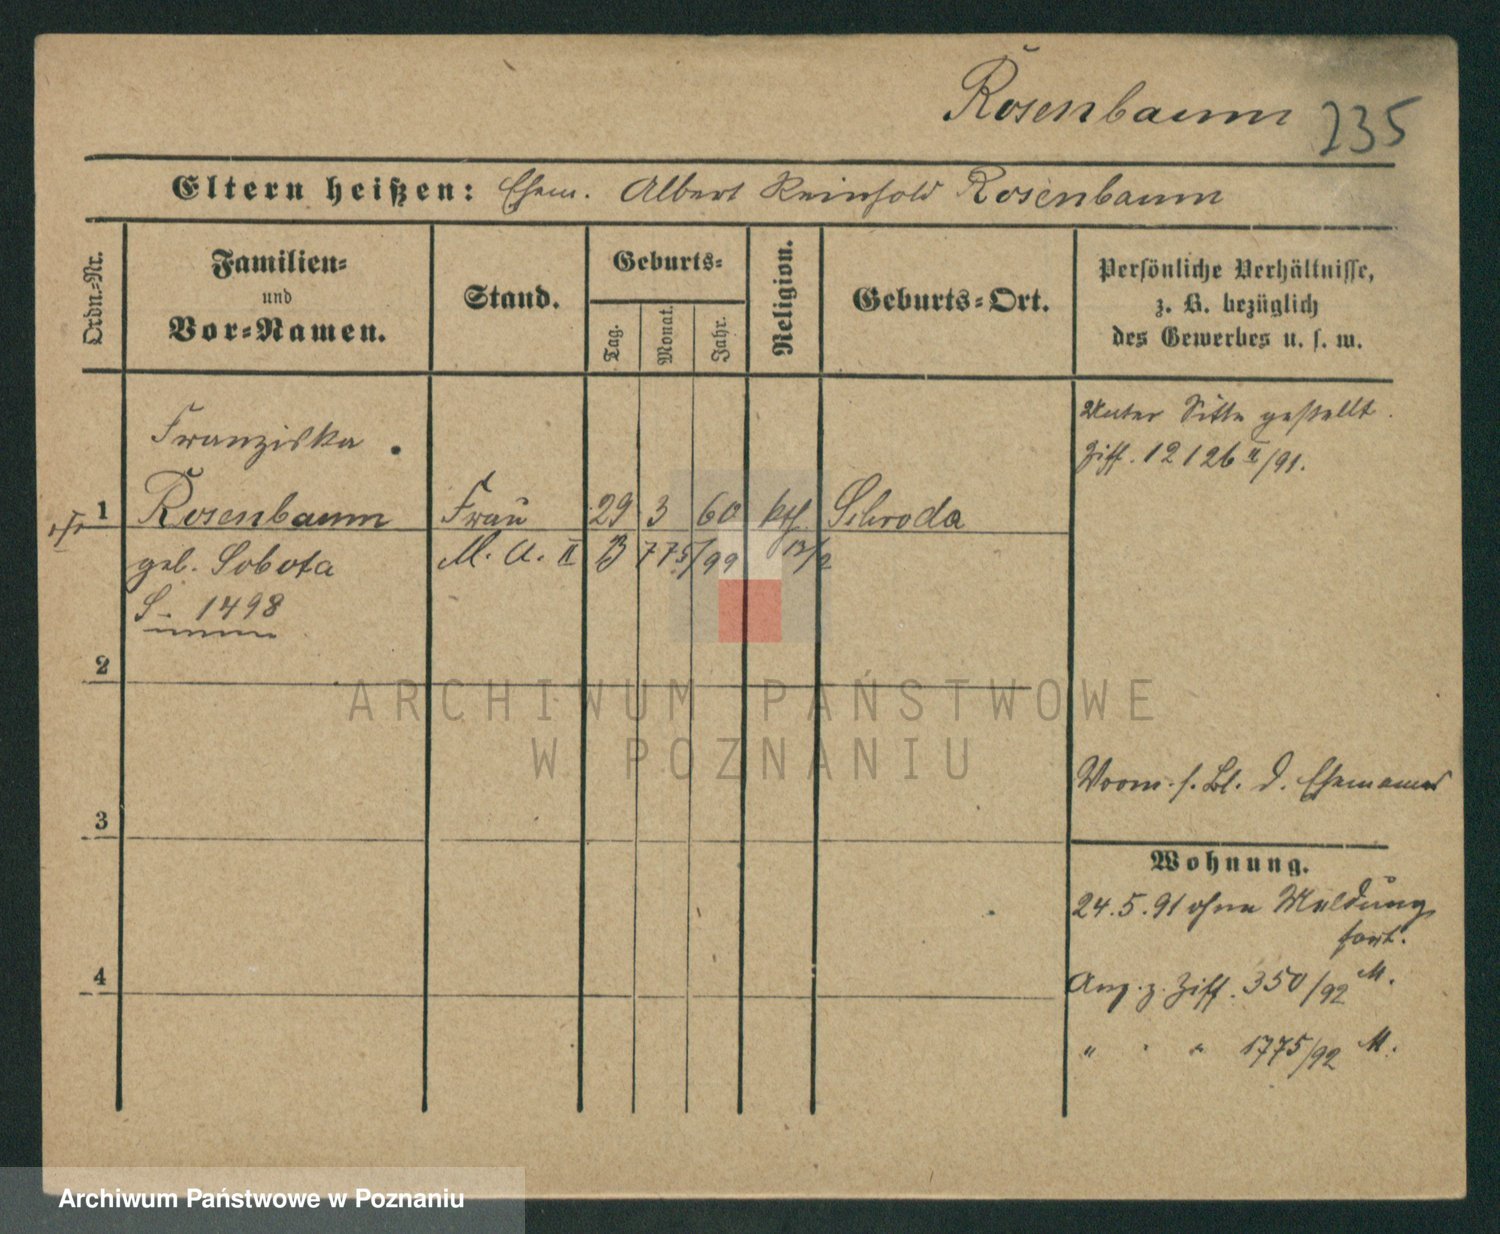 Rosenbaum 235
Eltern heißen: Ehem. Albert Reinhold Rosenbaum
Ordn.-Nr.
Familien-
und
Vor-Namen.
Stand.
Geburts-
Tag.
Monat.
Jahr.
Religion.
Geburts-Ort.
Persönliche Verhältnisse,
z. B. bezüglich
des Gewerbes u. s. w.
Unter Sitte gestellt.
Ziff. 12126 II/91.
Franziska
1 Rosenbaum Frau 29 3 60 kth. Schroda
geb. Sobota M. A. II B 775/99 13/2
S- 1498
2
3
4
Vorm. s. Bl. d. Ehemannes
Wohnung.
24.5.91 ohne Meldung
fort.
Ang. z. Ziff. 350/92 M.
" " 1775/92 M.
ARCHIWUM PAŃSTWOWE
W POZNANIU
Archiwum Państwowe w Poznaniu